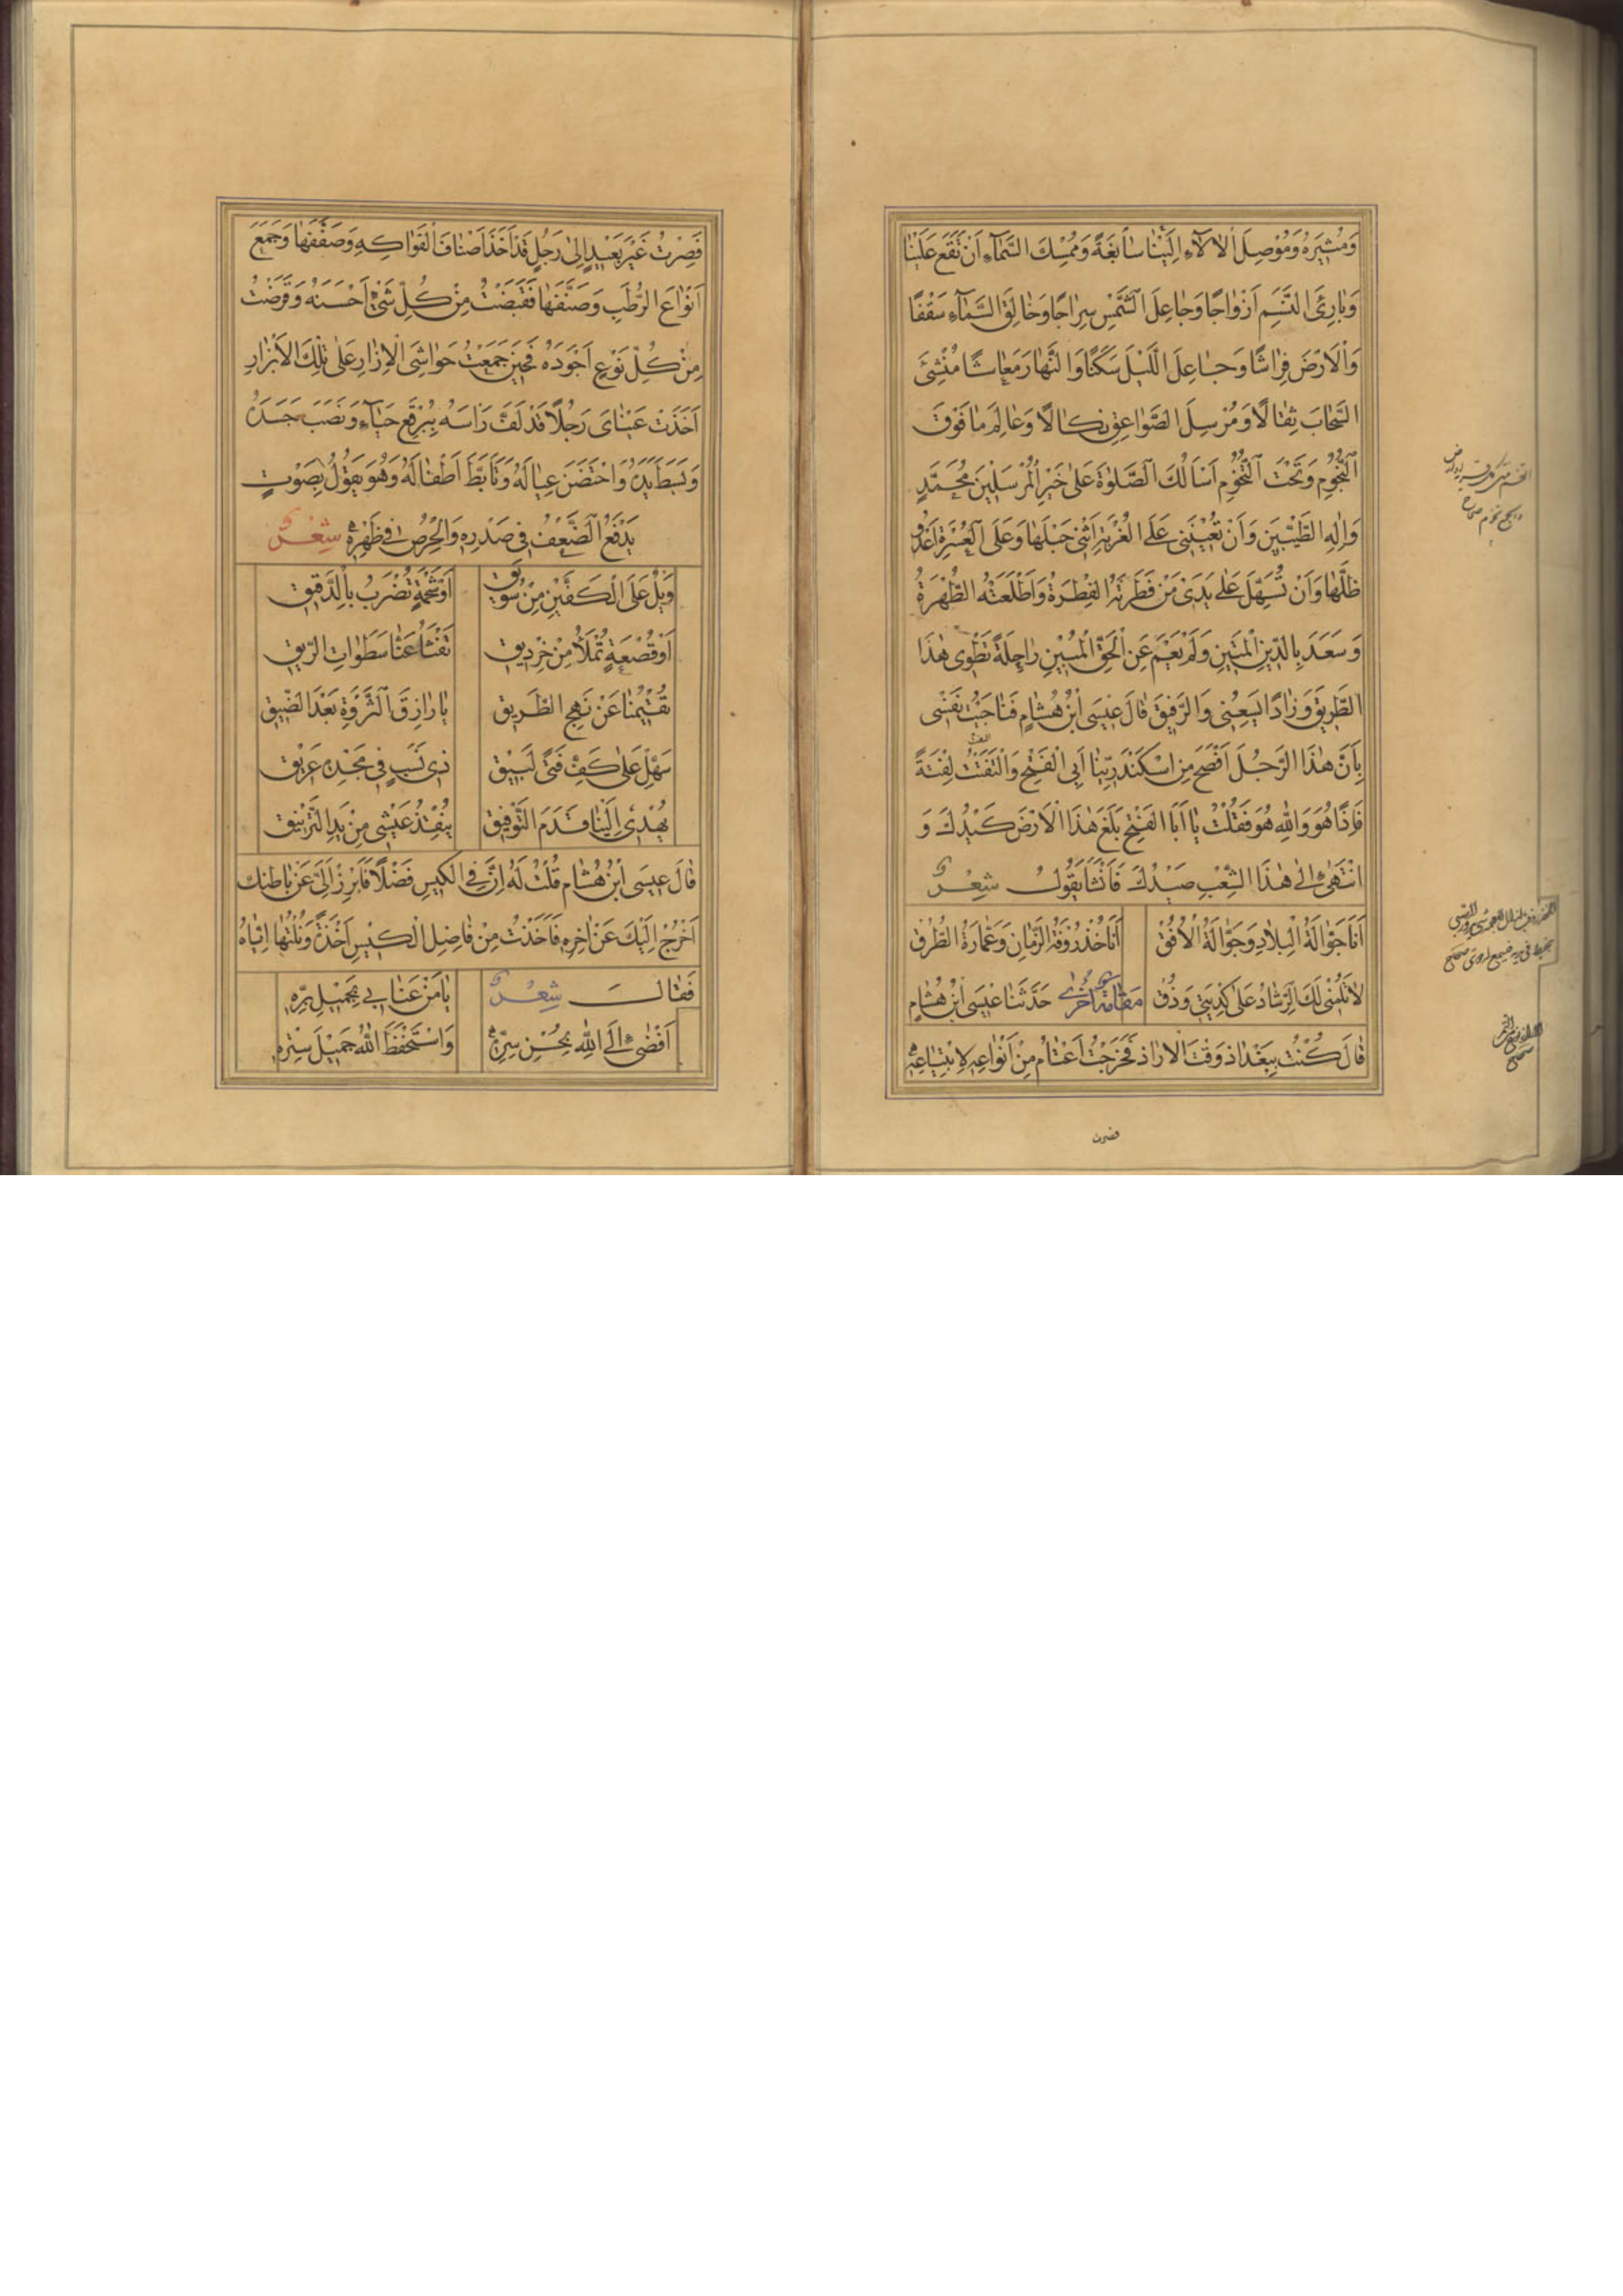 وَمُنْشِيَهُ وَمُوْصِلَ الْاٰلَآءِ اِلَيْنَا سَابِغَةً وَمُمْسِكَ السَّمَآءِ اَنْ تَقَعَ عَلَيْنَا
وَبَارِئَ النَّسَمِ اَزْوَاجًا وَجَاعِلَ الشَّمْسِ سِرَاجًا وَخَالِقَ السَّمَآءِ سَقْفًا
وَالْاَرْضَ فِرَاشًا وَجَاعِلَ اللَّيْلَ سَكَنًا وَالنَّهَارَ مَعَاشًا مُنْشِئَ
السَّحَابَ ثِقَالًا وَمُرْسِلَ الصَّوَاعِقِ نِكَالًا وَعَالِمَ مَا فَوْقَ
النُّجُوْمِ وَتَحْتَ التُّخُوْمِ اَسْاَلُكَ الصَّلٰوةَ عَلٰى خَيْرِ الْمُرْسَلِيْنَ مُحَمَّدٍ
وَاٰلِهِ الطَّيِّبِيْنَ وَاَنْ تُعِيْنَنِى عَلَى الْغُرْبَةِ اَثْنِى حَبْلَهَا وَعَلَى الْعُسْرَةِ اَعْدُو
ظِلَّهَا وَاَنْ تُسَهِّلَ عَلٰى يَدَىْ مَنْ فَطَرَتْهُ الْفِطْرَةُ وَاَطْلَعَتْهُ الطُّهْرَةُ
وَسَعَدَ بِالدِّيْنِ الْمَتِيْنِ وَلَمْ يَعْمَ عَنِ الْحَقِّ الْمُبِيْنِ رَاحِلَةً تَطْوِى هٰذَا
الطَّرِيْقَ وَزَادًا يَسَعُنِى وَالرَّفِيْقَ قَالَ عِيْسَى ابْنُ هِشَامٍ فَنَاجَيْتُ نَفْسِى
بِاَنَّ هٰذَا الرَّجُلَ اَفْصَحُ مِنْ اِسْكَنْدَرِيِّنَا اَبِى الْفَتْحِ وَالْتَفَتُّ لِفْتَةً
فَاِذًا هُوَ وَاللّٰهِ هُوَ فَقُلْتُ يَا اَبَا الْفَتْحِ بَلَغَ هٰذَا الْاَرْضَ كَيْدُكَ وَ
انْتَهٰى اِلٰى هٰذَا الشِّعْبِ صَيْدُكَ فَاَنْشَاَ يَقُوْلُ شِعْرٌ
اَنَا جَوَّالَةُ الْبِلَادِ وَجَوَّابَةُ الْاُفُقْ
اَنَا خُذْرُوْفَةُ الزَّمَانِ وَعَمَّارَةُ الطُّرُقْ
لَا تَلُمْنِى لَكَ الرَّشَادُ عَلٰى كُدْيَتِى وَذُقْ
مَقَامَةٌ اُخْرٰى حَدَّثَنَا عِيْسَى ابْنُ هِشَامٍ
قَالَ كُنْتُ بِبَغْدَاذَ وَقْتَ الْازَاذِ فَخَرَجْتُ اَعْتَامُ مِنْ اَنْوَاعِهِ لِابْتِيَاعِهِ
فصرت
فَصِرْتُ غَيْرَ بَعِيْدٍ اِلٰى رَجُلٍ قَدْ اَخَذَ اَصْنَافَ الْفَوَاكِهِ وَصَفَّفَهَا وَجَمَعَ
اَنْوَاعَ الرُّطَبِ وَصَنَّفَهَا فَقَبَضْتُ مِنْ كُلِّ شَىْءٍ اَحْسَنَهُ وَقَرَضْتُ
مِنْ كُلِّ نَوْعٍ اَجْوَدَهُ فَحِيْنَ جَمَعْتُ حَوَاشِىَ الْاِزَارِ عَلٰى تِلْكَ الْاَبْزَارِ
اَخَذَتْ عَيْنَاىَ رَجُلًا قَدْ لَفَّ رَاْسَهُ بِبُرْقَعِ حَيَآءٍ وَنَصَبَ جَسَدَهُ
وَبَسَطَ يَدَهُ وَاحْتَضَنَ عِيَالَهُ وَتَاَبَّطَ اَطْفَالَهُ وَهُوَ يَقُوْلُ بِصَوْتٍ
يَدْفَعُ الضَّعْفَ فِى صَدْرِهِ وَالْحِرْصَ فِى ظَهْرِهِ شِعْرٌ
وَيْلٌ عَلَى الْكَفَّيْنِ مِنْ سَوِيْقِ
اَوْ شَحْمَةٍ تُضْرَبُ بِالدَّقِيْقِ
اَوْ قَصْعَةٍ تُمْلَأُ مِنْ خِرْدِيْقِ
تَفْثَاُ عَنَّا سَطَوَاتِ الرِّيْقِ
تُقِيْمُنَا عَنْ نَهْجِ الطَّرِيْقِ
يَا رَازِقَ الثَّرْوَةِ بَعْدَ الضِّيْقِ
سَهِّلْ عَلٰى كَفِّ فَتًى لَبِيْقِ
ذِى نَسَبٍ فِى مَجْدِهِ عَرِيْقِ
يُهْدِىْ اِلَيْنَا قَدَمَ التَّوْفِيْقِ
يُنْقِذُ عَيْشِى مِنْ يَدِ التَّرْنِيْقِ
قَالَ عِيْسَى ابْنُ هِشَامٍ قُلْتُ لَهُ اِنَّ فِى الْكِيْسِ فَضْلًا فَابْرِزْ اِلَىَّ عَنْ بَاطِنِكَ
اَخْرُجْ اِلَيْكَ عَنْ اٰخِرِهِ فَاَخَذْتُ مِنْ فَاضِلِ الْكِيْسِ اَخْذَةً وَنُلْتُهَا اِيَّاهُ
فَقَالَ شِعْرٌ
يَا مَنْ عَنَانِى بِجَمِيْلِ بِرِّهِ
اَفْضٰى اِلَى اللّٰهِ بِحُسْنِ سِرِّهِ
وَاسْتَحْفَظَ اللّٰهَ جَمِيْلَ سِتْرِهِ